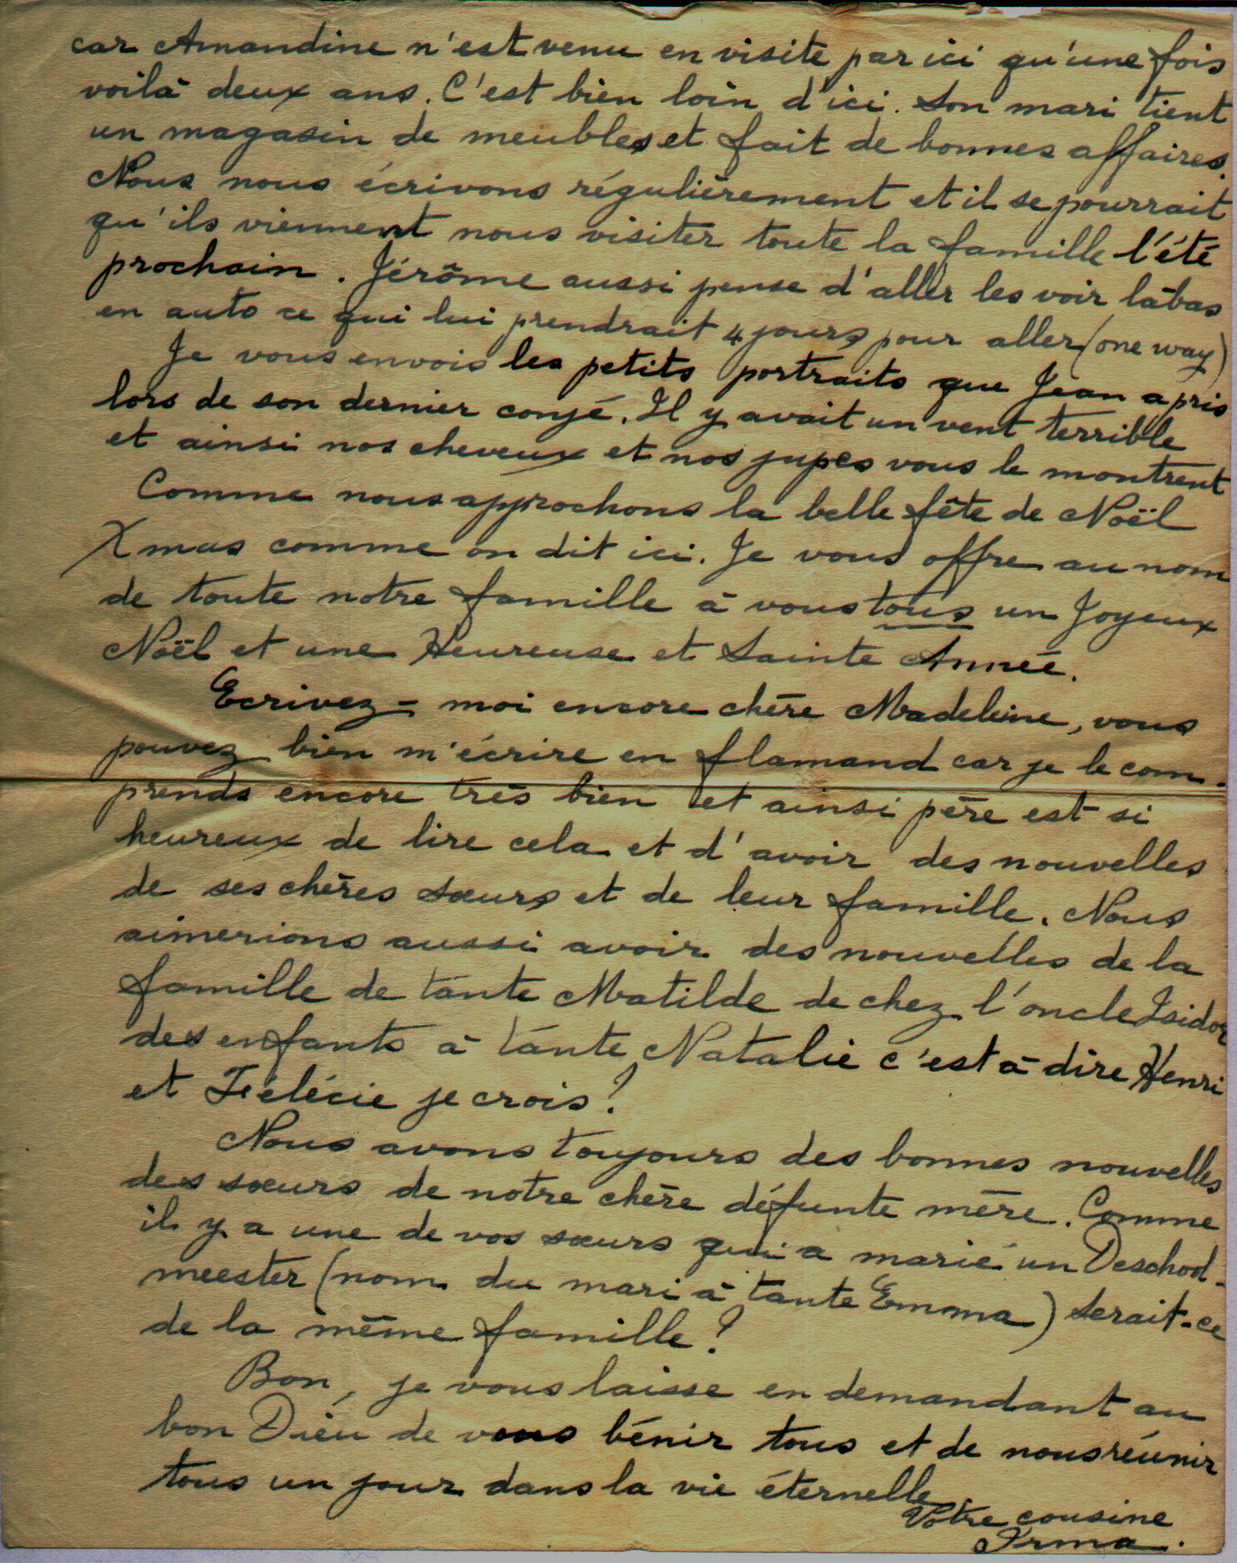 car Amandine n'est venu en visite par ici qu'une fois
voilà deux ans. C'est bien loin d'ici. Son mari tient
un magasin de meubles et fait de bonnes affaires.
Nous nous écrivons régulièrement et il se pourrait
qu'ils viennent nous visiter toute la famille l'été
prochain. Jérôme aussi pense d'aller les voir làbas
en auto ce qui lui prendrait 4 jours pour aller (one way)
Je vous envois les petits portraits que Jean a pris
lors de son dernier conjé. Il y avait un vent terrible
et ainsi nos cheveux et nos jupes vous le montrent
Comme nous approchons la belle fête de Noël
Xmas comme on dit ici. Je vous offre au nom
de toute notre famille à vous tous un Joyeux
Noël et une Heureuse et Sainte Année.
Ecrivez-moi encore chère Madeleine, vous
pouvez bien m'écrire en flamand car je le com-
prends encore très bien et ainsi père est si
heureux de lire cela et d'avoir des nouvelles
de ses chères sœurs et de leur famille. Nous
aimerions aussi avoir des nouvelles de la
famille de tante Matilde de chez l'oncle Isidor
des enfants à tante Natalie c'est à dire Henri
et Félécie je crois?
Nous avons toujours des bonnes nouvelles
des sœurs de notre chère défunte mère. Comme
il y a une de vos sœurs qui a marié un Deschod-
meester (nom du mari à tante Emma) serait-ce
de la même famille?
Bon, je vous laisse en demandant au
bon Dieu de vous bénir tous et de nous réunir
tous un jour dans la vie éternelle.
Votre cousine
Irma.